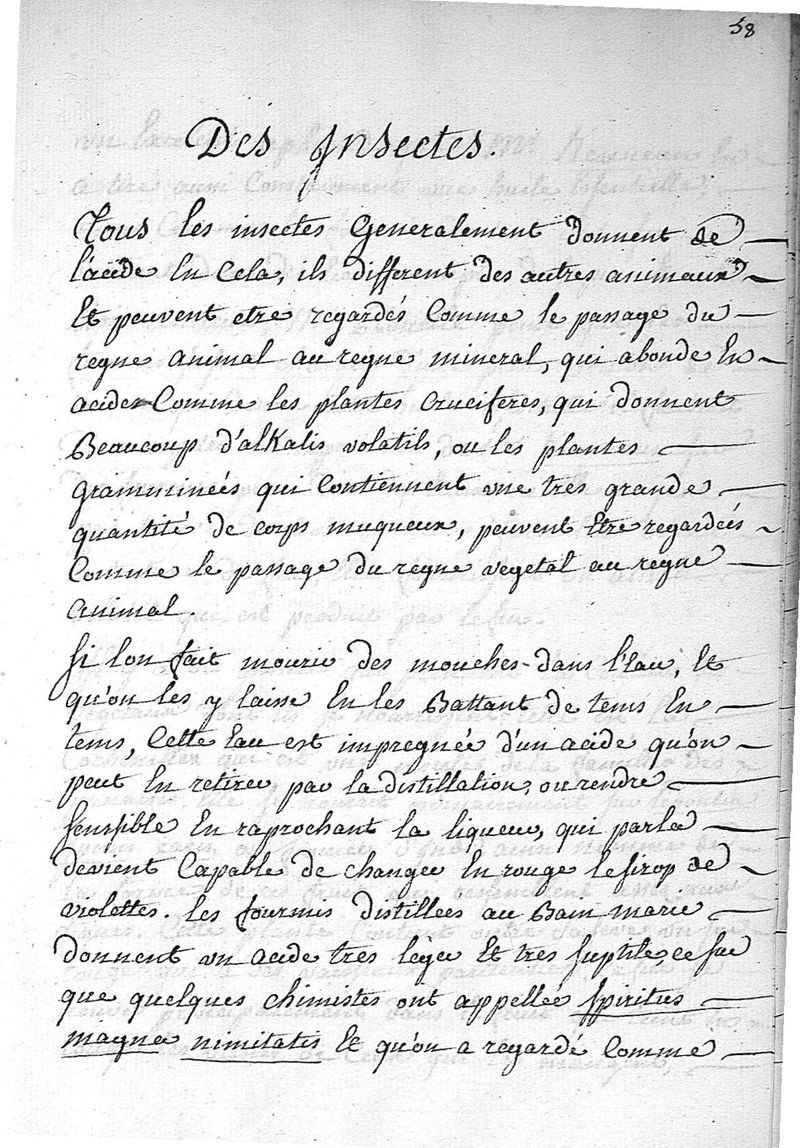 58
Des Insectes.
Tous les insectes Generalement donnent de
l'acide En Cela, ils different des autres animaux
Et peuvent etre regardés Comme le passage du
regne animal au regne mineral, qui abonde En
acides Comme les plantes Cruciferes, qui donnent
Beaucoup d'alKalis volatils, ou les plantes
grammineés qui Contiennent une tres grande
quantité de corps muqueux, peuvent Etre regardeés
Comme le passage du regne vegetal au regne
animal.
Si lon fait mourir des mouches dans l'Eau, Et
qu'on les y laisse En les Battant de tems En
tems, Cette Eau est impregneé d'un acide qu'on
peut En retirer par la distillation, ou rendre
sensible En raprochant la liqueur, qui par la
devient Capable de changer En rouge le sirop de
violettes. les fourmis distilleés au Bain marie
donnent un acide tres léger Et tres suptile, ce suc
que quelques chimistes ont appelleé spiritus
magnanimitatis Et qu'on a regardé Comme